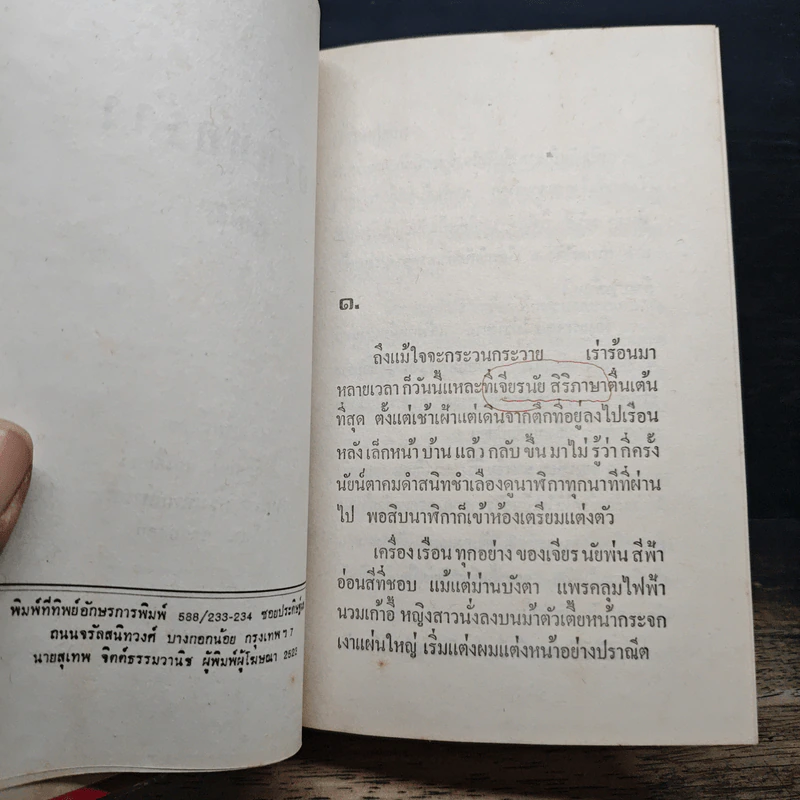 พิมพ์ที่ทิพย์อักษรการพิมพ์ 588/233-234
ถนนจรัลสนิทวงศ์ บางกอกน้อย กรุงเทพฯ 7
นายสุเทพ จิตต์ธรรมวานิช ผู้พิมพ์ผู้โฆษณา
๑.
ถึงแม้ใจจะกระวนกระวาย เร่าร้อนมา
หลายเวลา ก็วันนี้แหละที่เจียรนัย สิริภาษาตื่นเต้น
ที่สุด ตั้งแต่เช้าเฝ้าแต่เดินจากตึกที่อยู่ลงไปเรือน
หลัง เล็กหน้า บ้าน แล้ว กลับ ขึ้น มาไม่ รู้ว่า กี่ครั้ง
นัยน์ตาคมดำสนิทชำเลืองดูนาฬิกาทุกนาทีที่ผ่าน
ไป พอสิบนาฬิกาก็เข้าห้องเตรียมแต่งตัว
เครื่อง เรือน ทุกอย่าง ของเจียร นัยพ่น สีฟ้า
อ่อนสีที่ชอบ แม้แต่ม่านบังตา แพรคลุมไฟฟ้า
นวมเก้าอี้ หญิงสาวนั่งลงบนม้าตัวเตี้ยหน้ากระจก
เงาแผ่นใหญ่ เริ่มแต่งผมแต่งหน้าอย่างปราณีต